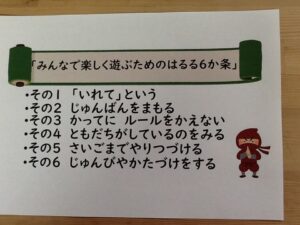 「みんなで楽しく遊ぶためのはるる6か条」
・その1 「いれて」という
・その2 じゅんばんをまもる
・その3 かってに ルールをかえない
・その4 ともだちがしているのをみる
・その5 さいごまでやりつづける
・その6 じゅんびやかたづけをする